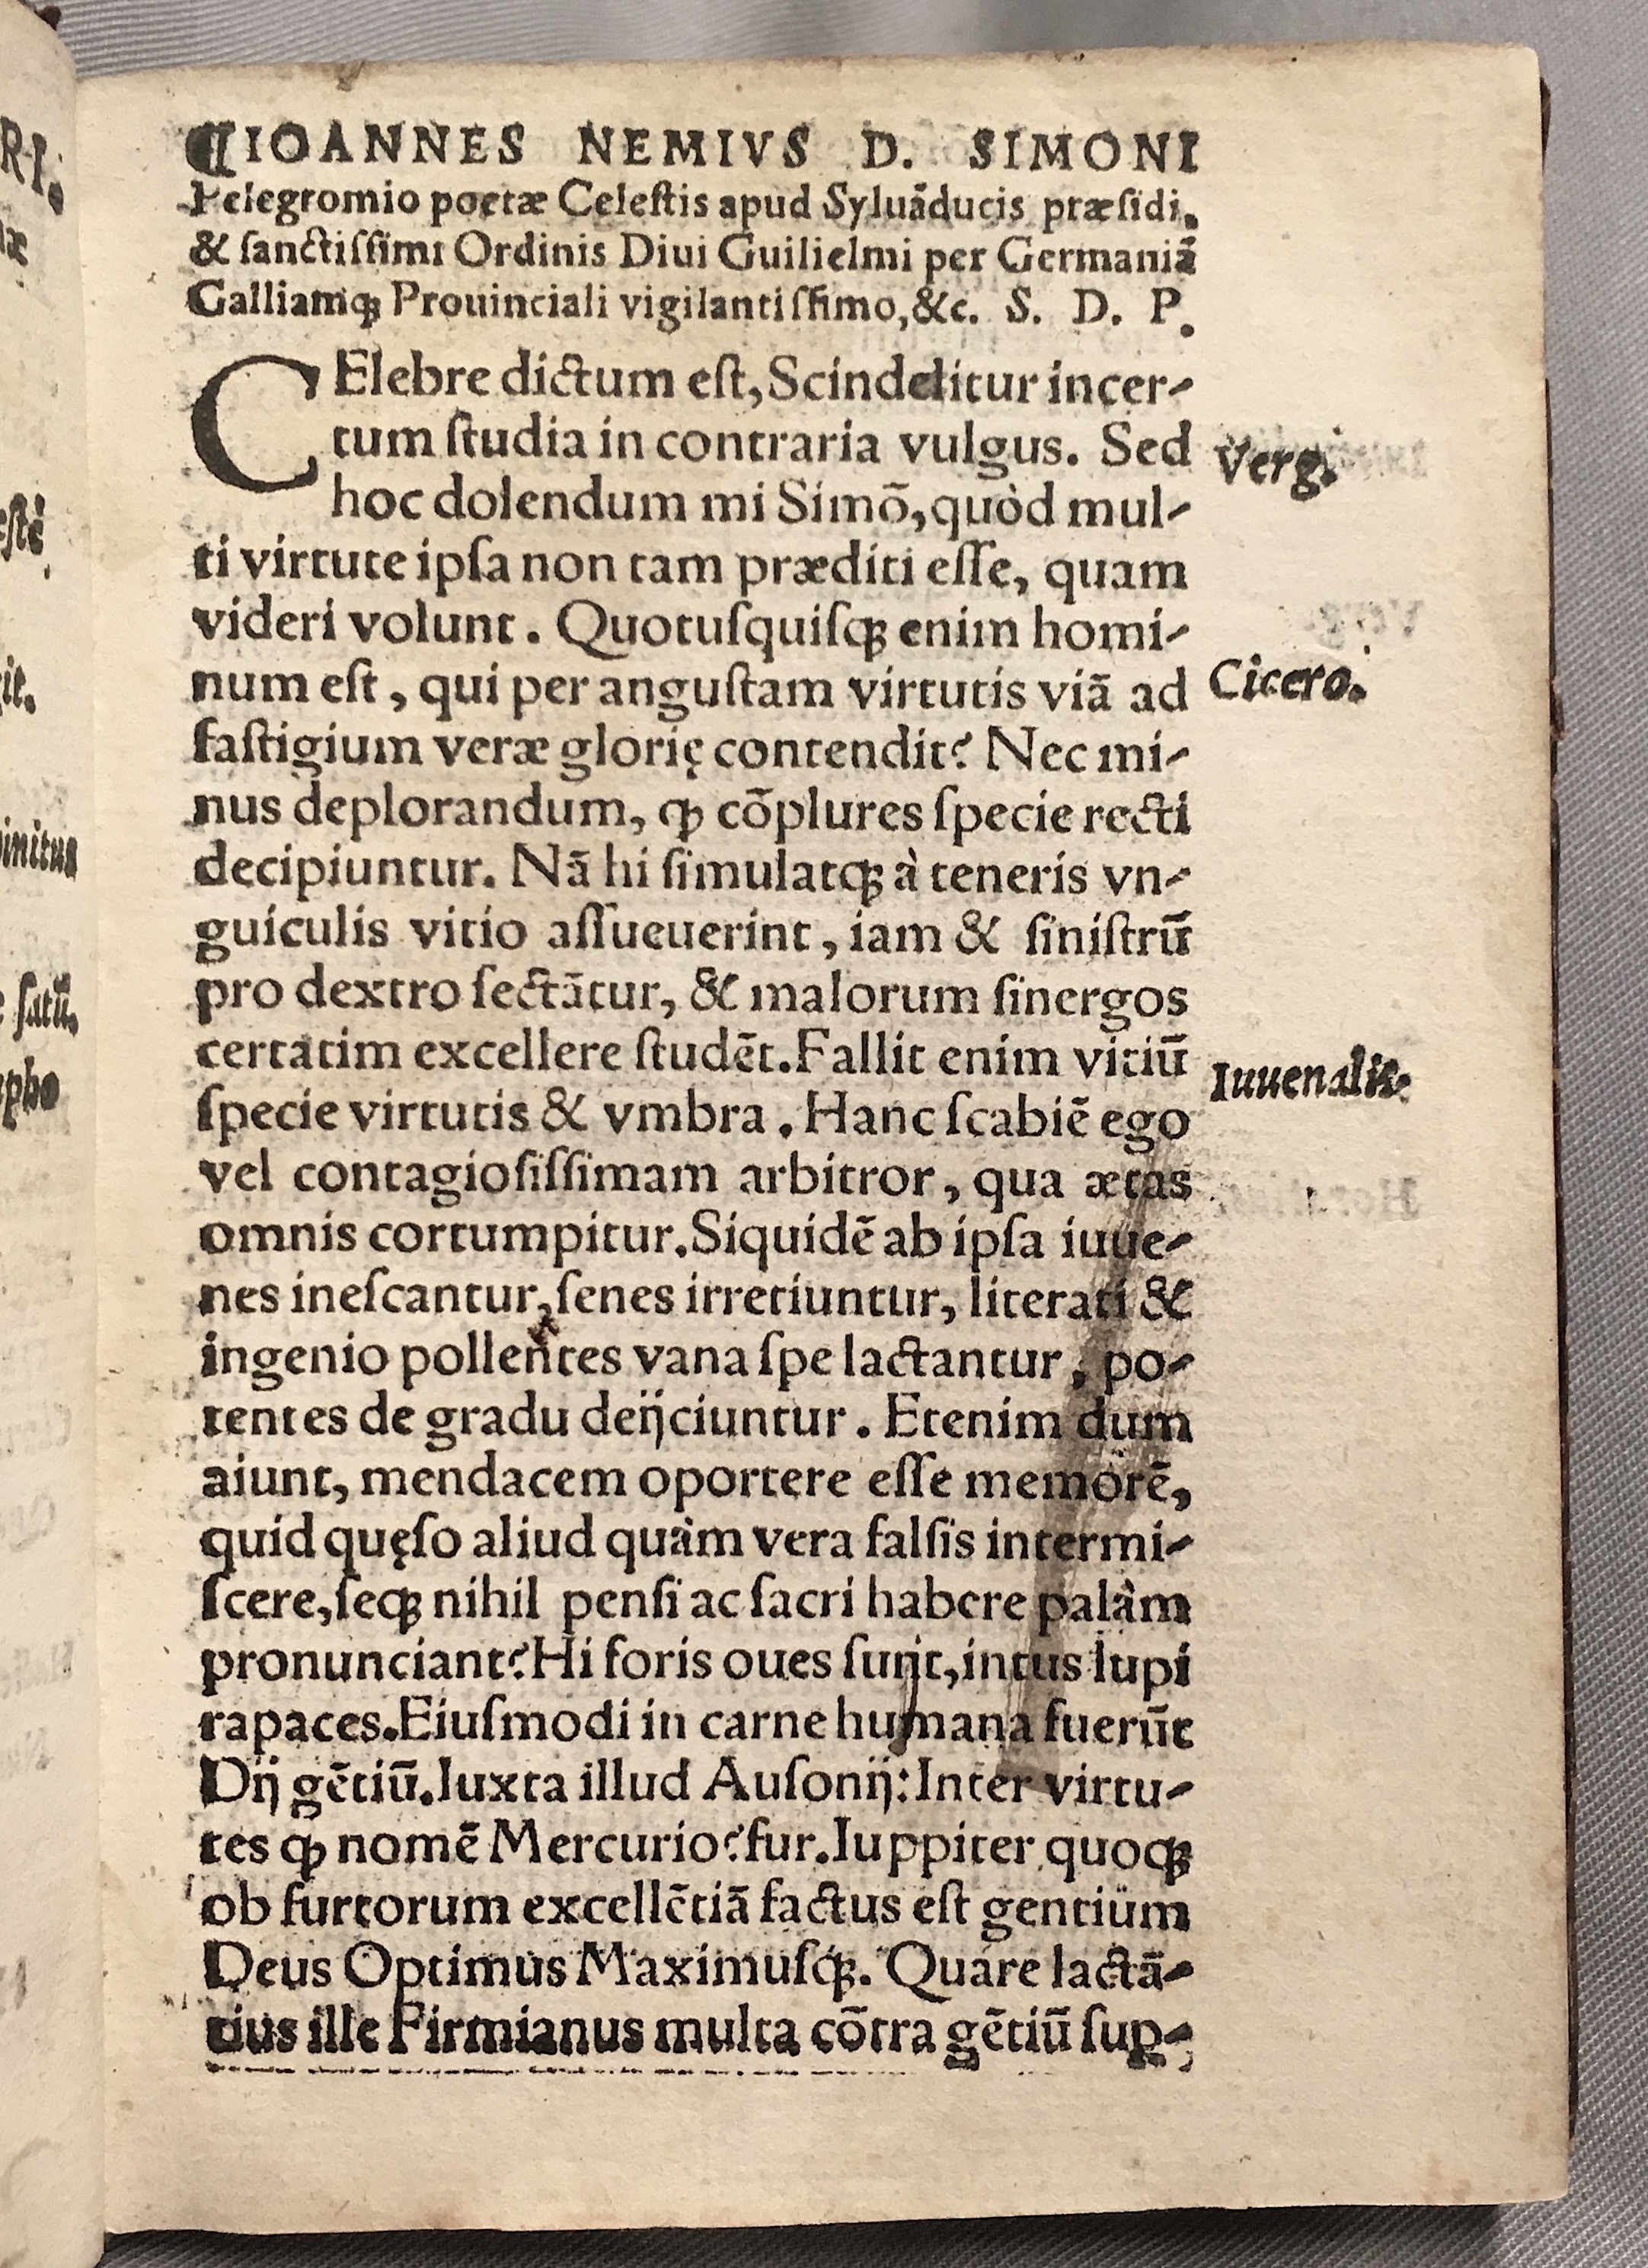 ¶IOANNES NEMIVS D. SIMONI
Pelegromio poetæ Celeſtis apud Syluāducis præſidi,
& ſanctiſſimi Ordinis Diui Guilielmi per Germaniā
Galliamqꝫ Prouinciali vigilantiſſimo,&c. S. D. P.
CElebre dictum eſt, Scinditur incer-
tum ſtudia in contraria vulgus. Sed
Verg.
hoc dolendum mi Simō, quòd mul-
ti virtute ipſa non tam præditi eſſe, quam
videri volunt. Quotuſquiſqꝫ enim homi-
num eſt, qui per anguſtam virtutis viā ad
Cicero.
faſtigium veræ glorię contendit? Nec mi-
nus deplorandum, ꝙ cōplures ſpecie recti
decipiuntur. Nā hi ſimulatqꝫ à teneris vn-
guiculis vitio aſſueuerint, iam & ſiniſtrū
pro dextro ſectātur, & malorum ſinergos
certatim excellere ſtudēt. Fallit enim vitiū
Iuuenalis.
ſpecie virtutis & vmbra. Hanc ſcabiē ego
vel contagioſiſſimam arbitror, qua ætas
omnis corrumpitur. Siquidē ab ipſa iuue-
nes ineſcantur, ſenes irretiuntur, literati &
ingenio pollentes vana ſpe lactantur, po-
tentes de gradu deijciuntur. Etenim dum
aiunt, mendacem oportere eſſe memorē,
quid quęſo aliud quàm vera falſis intermi-
ſcere, ſeqꝫ nihil penſi ac ſacri habere palàm
pronunciant? Hi foris oues ſunt, intus lupi
rapaces. Eiuſmodi in carne humana fuerūt
Dij gētiū. Iuxta illud Auſonij: Inter virtu-
tes ꝙ nomē Mercurio? fur. Iuppiter quoqꝫ
ob furtorum excellētiā factus eſt gentium
Deus Optimus Maximuſqꝫ. Quare lactā-
tius ille Firmianus multa cōtra gētiū ſup-